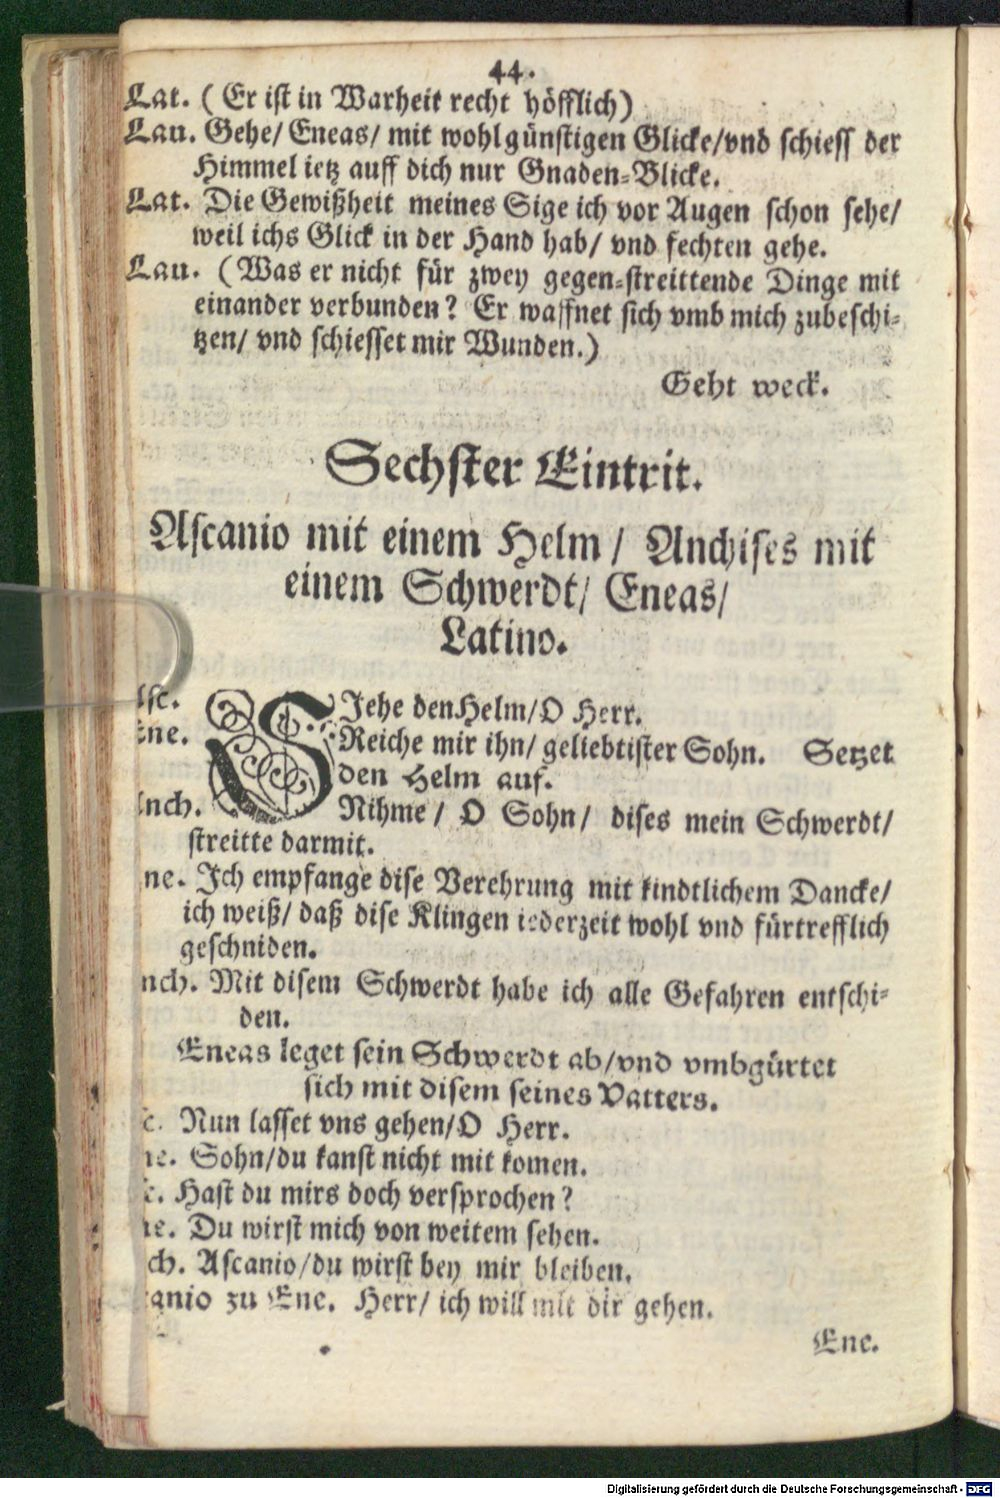 44.
Lat. (Er ist in Warheit recht höfflich)
Lau. Gehe/ Eneas/ mit wohlgünstigen Glicke/vnd schiess der
Himmel ietz auff dich nur Gnaden-Blicke.
Lat. Die Gewißheit meines Sige ich vor Augen schon sehe/
weil ichs Glick in der Hand hab/ vnd fechten gehe.
Lau. (Was er nicht für zwey gegen-streittende Dinge mit
einander verbunden? Er waffnet sich vmb mich zubeschi-
tzen/ vnd schiesset mir Wunden.)
Geht weck.
Sechster Eintrit.
Ascanio mit einem Helm/ Anchises mit
einem Schwerdt/ Eneas/
Latino.
sc. SJehe den Helm/O Herr.
ne. Reiche mir ihn/ geliebtister Sohn. Setzet
den Helm auf.
nch. Nihme/ O Sohn/ dises mein Schwerdt/
streitte darmit.
ne. Ich empfange dise Verehrung mit kindtlichem Dancke/
ich weiß/ daß dise Klingen iederzeit wohl vnd fürtrefflich
geschniden.
nch. Mit disem Schwerdt habe ich alle Gefahren entschi-
den.
Eneas leget sein Schwerdt ab/vnd vmbgürtet
sich mit disem seines Vatters.
c. Nun lasset vns gehen/O Herr.
ne. Sohn/du kanst nicht mit komen.
c. Hast du mirs doch versprochen?
ne. Du wirst mich von weitem sehen.
ch. Ascanio/du wirst bey mir bleiben.
canio zu Ene. Herr/ ich will mit dir gehen.
Ene.
Digitalisierung gefördert durch die Deutsche Forschungsgemeinschaft - DFG